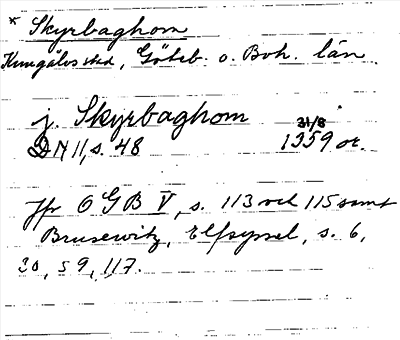 * Skyrbaghom
Kungälvs stad, Göteb. o. Boh. län
j. Skyrbaghom 31/8
DN II, s. 48 1359 or.
Jfr OGB V, s. 113 och 115 samt
Brusewitz, Elfsyssel, s. 6,
30, 59, 117.